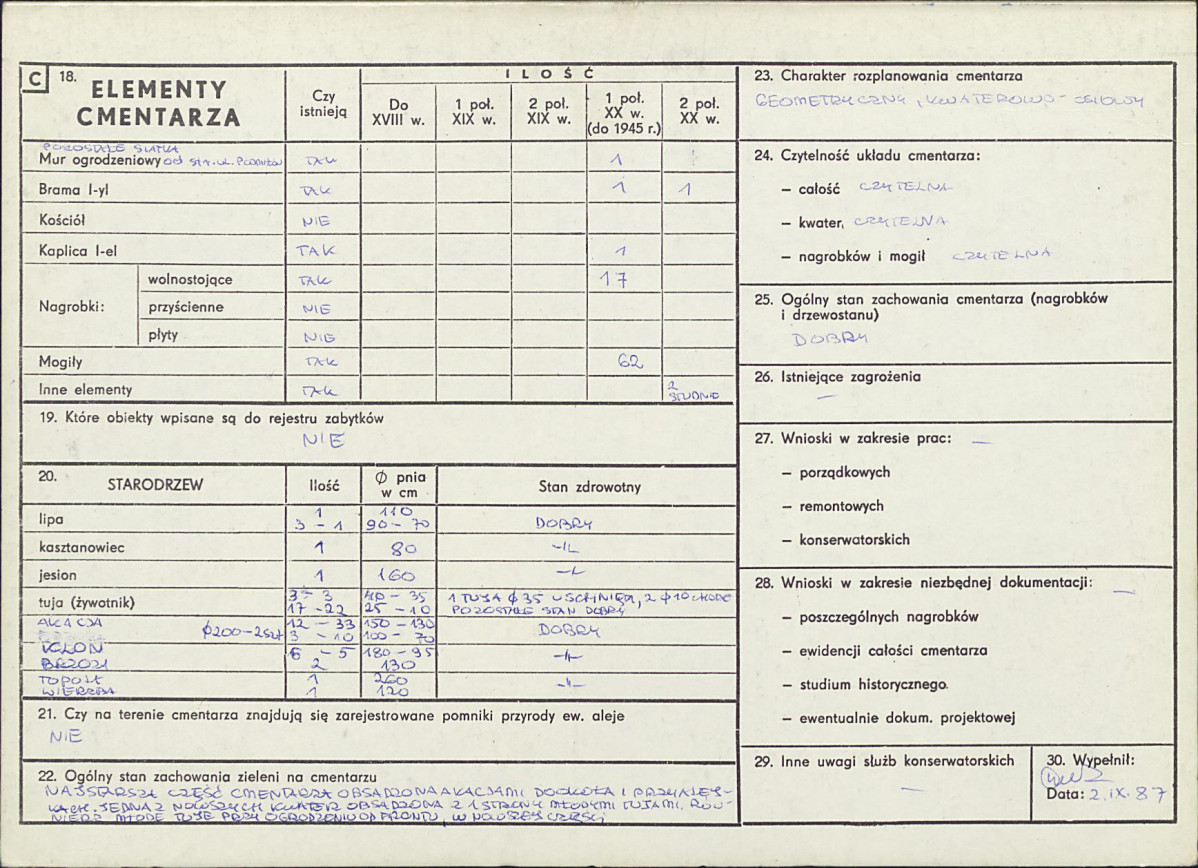 C 18. ELEMENTY CMENTARZA
Czy istnieją
ILOŚĆ
Do XVIII w.
1 poł. XIX w.
2 poł. XIX w.
1 poł. XX w. (do 1945 r.)
2 poł. XX w.
POZOSTAŁE SIATKA
Mur ogrodzeniowy od str. ul. TAK 1
Brama I-yl TAK 1 1
Kościół NIE
Kaplica I-el TAK 1
Nagrobki:
wolnostojące TAK 17
przyścienne NIE
płyty NIE
Mogiły TAK 62
Inne elementy TAK 2 STUDNIE
19. Które obiekty wpisane są do rejestru zabytków
NIE
20. STARODRZEW
Ilość
Ø pnia w cm
Stan zdrowotny
lipa 1 110
3 – 1 90 – 70 DOBRY
kasztanowiec 1 80 –"–
jesion 1 160 –"–
tuja (żywotnik) 3 – 3 40 – 35 1 TUJA Ø 35 USCHNIĘTA, 2 Ø 10 CHORE
17 – 22 25 – 10 POZOSTAŁE STAN DOBRY
AKACJA 12 – 33 150 – 130
Ø200–2szt 3 – 10 100 – 70 DOBRY
KLON 6 – 5 180 – 95 –"–
BRZOZY 2 130
TOPOLE 1 260 –"–
WIERZBA 1 120
21. Czy na terenie cmentarza znajdują się zarejestrowane pomniki przyrody ew. aleje
NIE
22. Ogólny stan zachowania zieleni na cmentarzu
NAJSTARSZA CZĘŚĆ CMENTARZA OBSADZONA AKACJAMI DOOKOŁA I PRZY ALEJ-
KACH. JEDNA Z NOWSZYCH KWATER OBSADZONA Z 1 STRONY MŁODYMI TUJAMI. RÓW-
NIEŻ MŁODE TUJE PRZY OGRODZENIU OD FRONTU, W NOWSZEJ CZĘŚCI
23. Charakter rozplanowania cmentarza
GEOMETRYCZNY, KWATEROWO – OSIOWY
24. Czytelność układu cmentarza:
– całość CZYTELNA
– kwater, CZYTELNA
– nagrobków i mogił CZYTELNA
25. Ogólny stan zachowania cmentarza (nagrobków
i drzewostanu)
DOBRY
26. Istniejące zagrożenia
—
27. Wnioski w zakresie prac: —
– porządkowych
– remontowych
– konserwatorskich
28. Wnioski w zakresie niezbędnej dokumentacji: —
– poszczególnych nagrobków
– ewidencji całości cmentarza
– studium historycznego
– ewentualnie dokum. projektowej
29. Inne uwagi służb konserwatorskich
—
30. Wypełnił:
Data: 2.IX.87